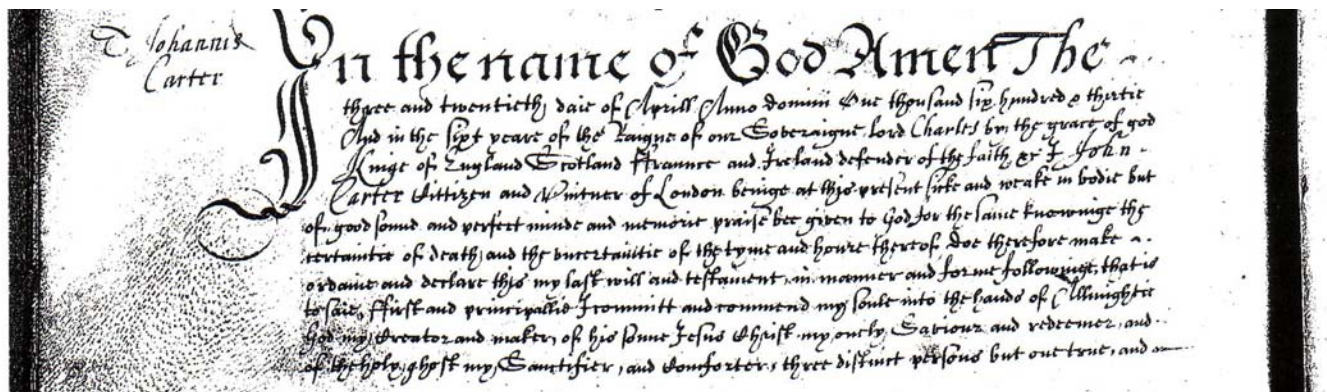 T Johannis
Carter
In the name of God Amen The
three and twentieth daie of Aprill Anno domini One thousand six hundred & thirtie
And in the sixt yeare of the Raigne of our Soveraigne lord Charles by the grace of god
Kinge of England Scotland Ffraunce and Ireland defender of the faith &c I John
Carter Cittizen and Vintner of London beinge at this present sicke and weake in bodie but
of good sounde and perfect minde and memorie praise bee given to God for the same knowinge the
certaintie of death and the uncertaintie of the tyme and houre thereof doe therefore make
ordaine and declare this my last will and testament, in manner and forme followinge, that is
to saie, ffirst and principallie I committ and commend my soule into the hands of Allmightie
God my Creator and maker, of his sonne Jesus Christ my onely Saviour and redeemer, and
of the holy ghost my Sanctifier, and Comforter, three distinct persons but one true, and